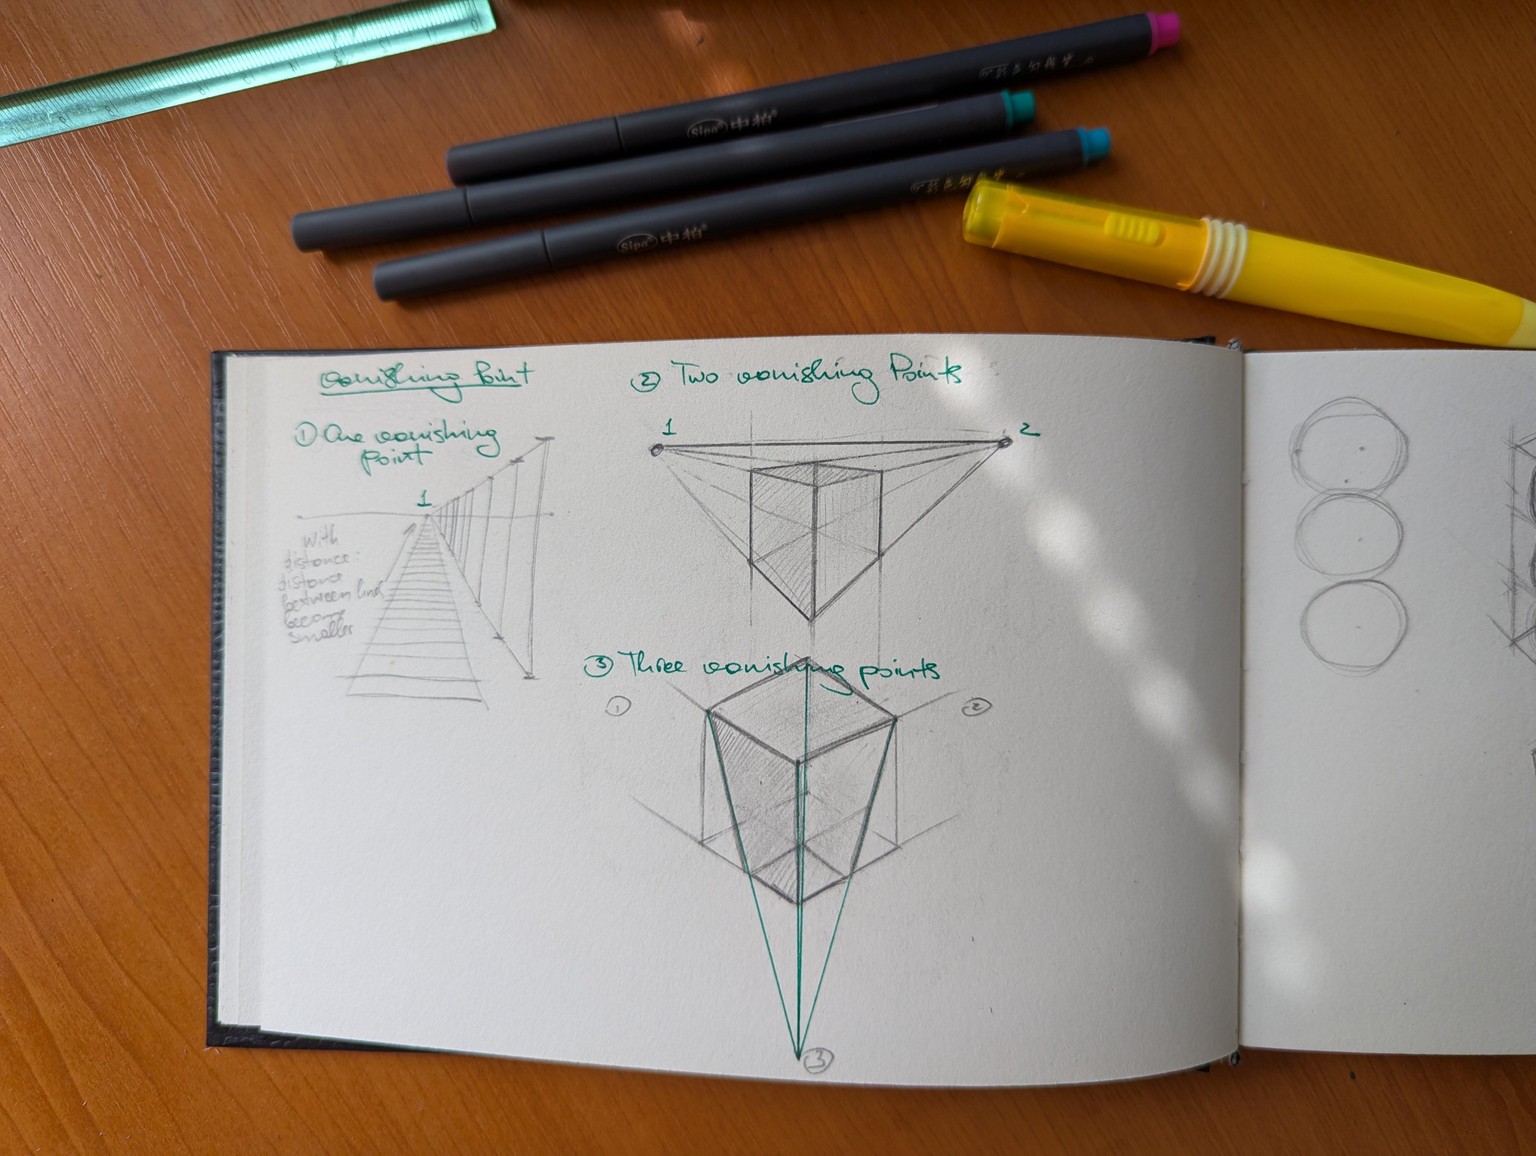 Sipa 中柏
Sipa 中柏
vanishing Point
① One vanishing
point
1
with
distance:
distance
between lines
become
smaller
② Two vanishing Points
1
2
③ Three vanishing points
①
②
③